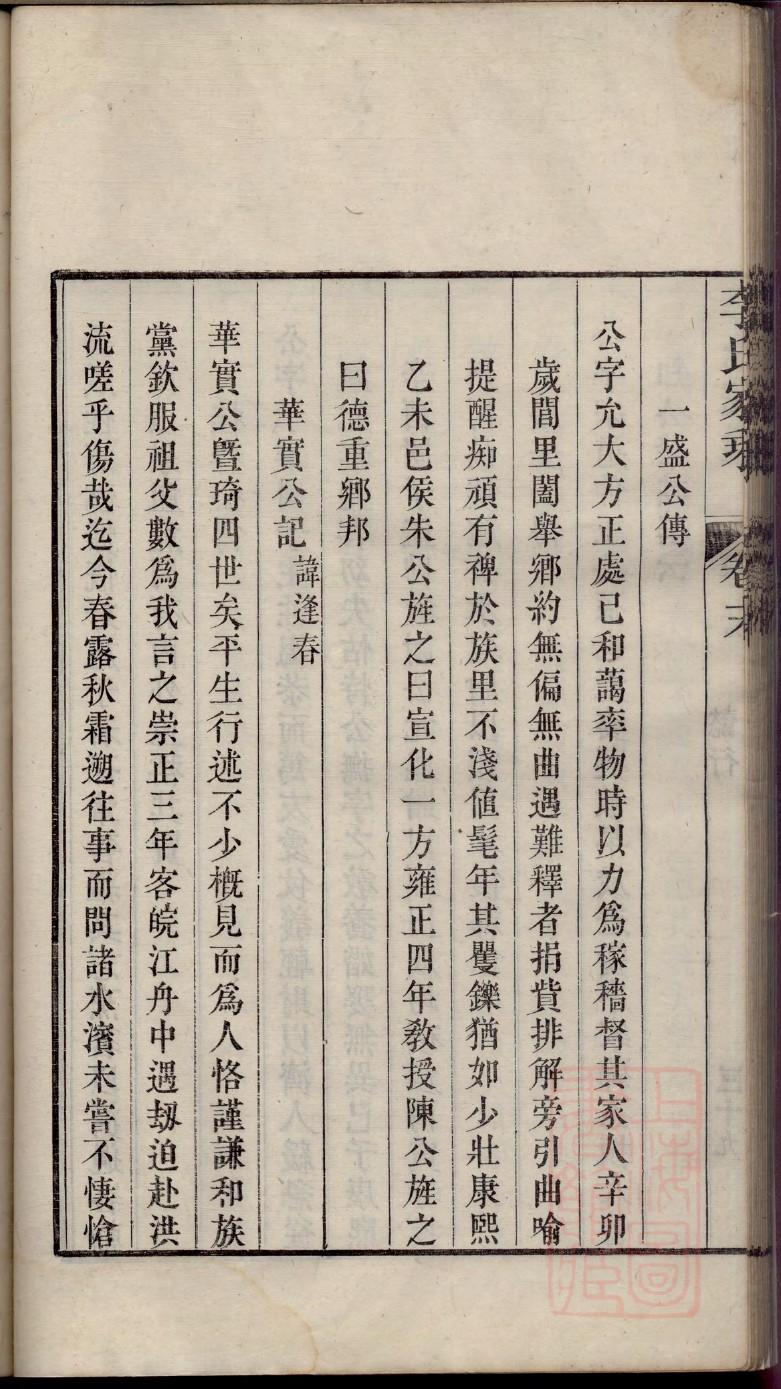 李氏家乘 卷末
一盛公傳
公字允大方正處己和藹率物時以力爲稼穡督其家人辛卯
歲閭里闔舉鄉約無偏無曲遇難釋者捐貲排解旁引曲喻
提醒痴頑有裨於族里不淺値髦年其矍鑠猶如少壯康熙
乙未邑侯朱公旌之曰宣化一方雍正四年敎授陳公旌之
曰德重鄉邦
華實公記 諱逢春
華實公曁琦四世矣平生行述不少槪見而爲人恪謹謙和族
黨欽服祖父數爲我言之崇正三年客皖江舟中遇刼迫赴洪
流嗟乎傷哉迄今春露秋霜遡往事而問諸水濱未嘗不悽愴